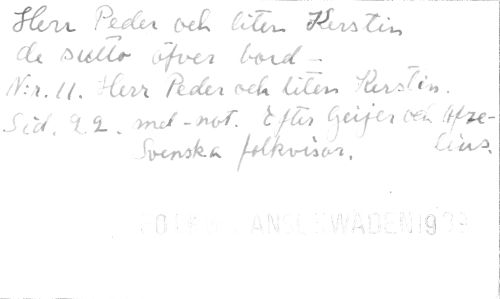 Herr Peder och liten Kerstin
de sutto öfver bord –
N:r. 11. Herr Peder och liten Kerstin.
Sid. 22. med-not. Efter Geijer och Afze-
lius.
Svenska folkvisor.